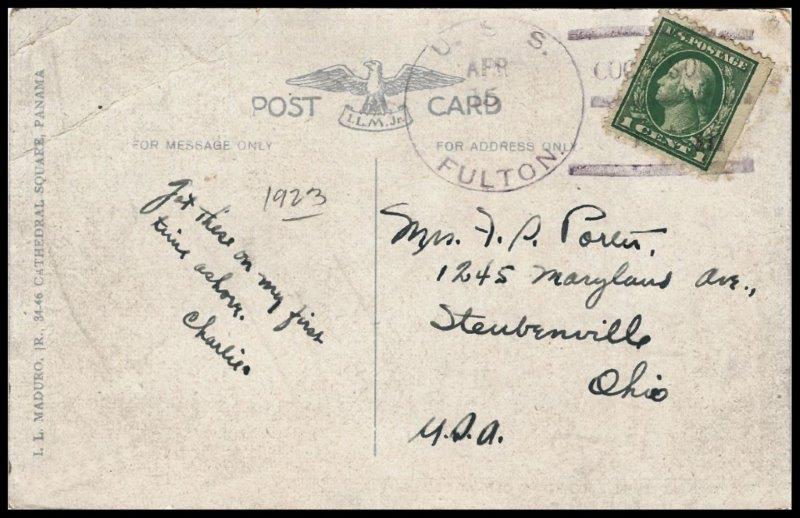 I. L. MADURO, JR., 34-46 CATHEDRAL SQUARE, PANAMA
POST CARD
I.L.M.Jr.
FOR MESSAGE ONLY
FOR ADDRESS ONLY
U. S. S.
APR
15
FULTON.
U.S. POSTAGE
1 CENT 1
1923
Got these on my first
time ashore.
Charlie.
Mrs. F. P.
1245 Maryland Ave.,
Steubenville
Ohio
U.S.A.